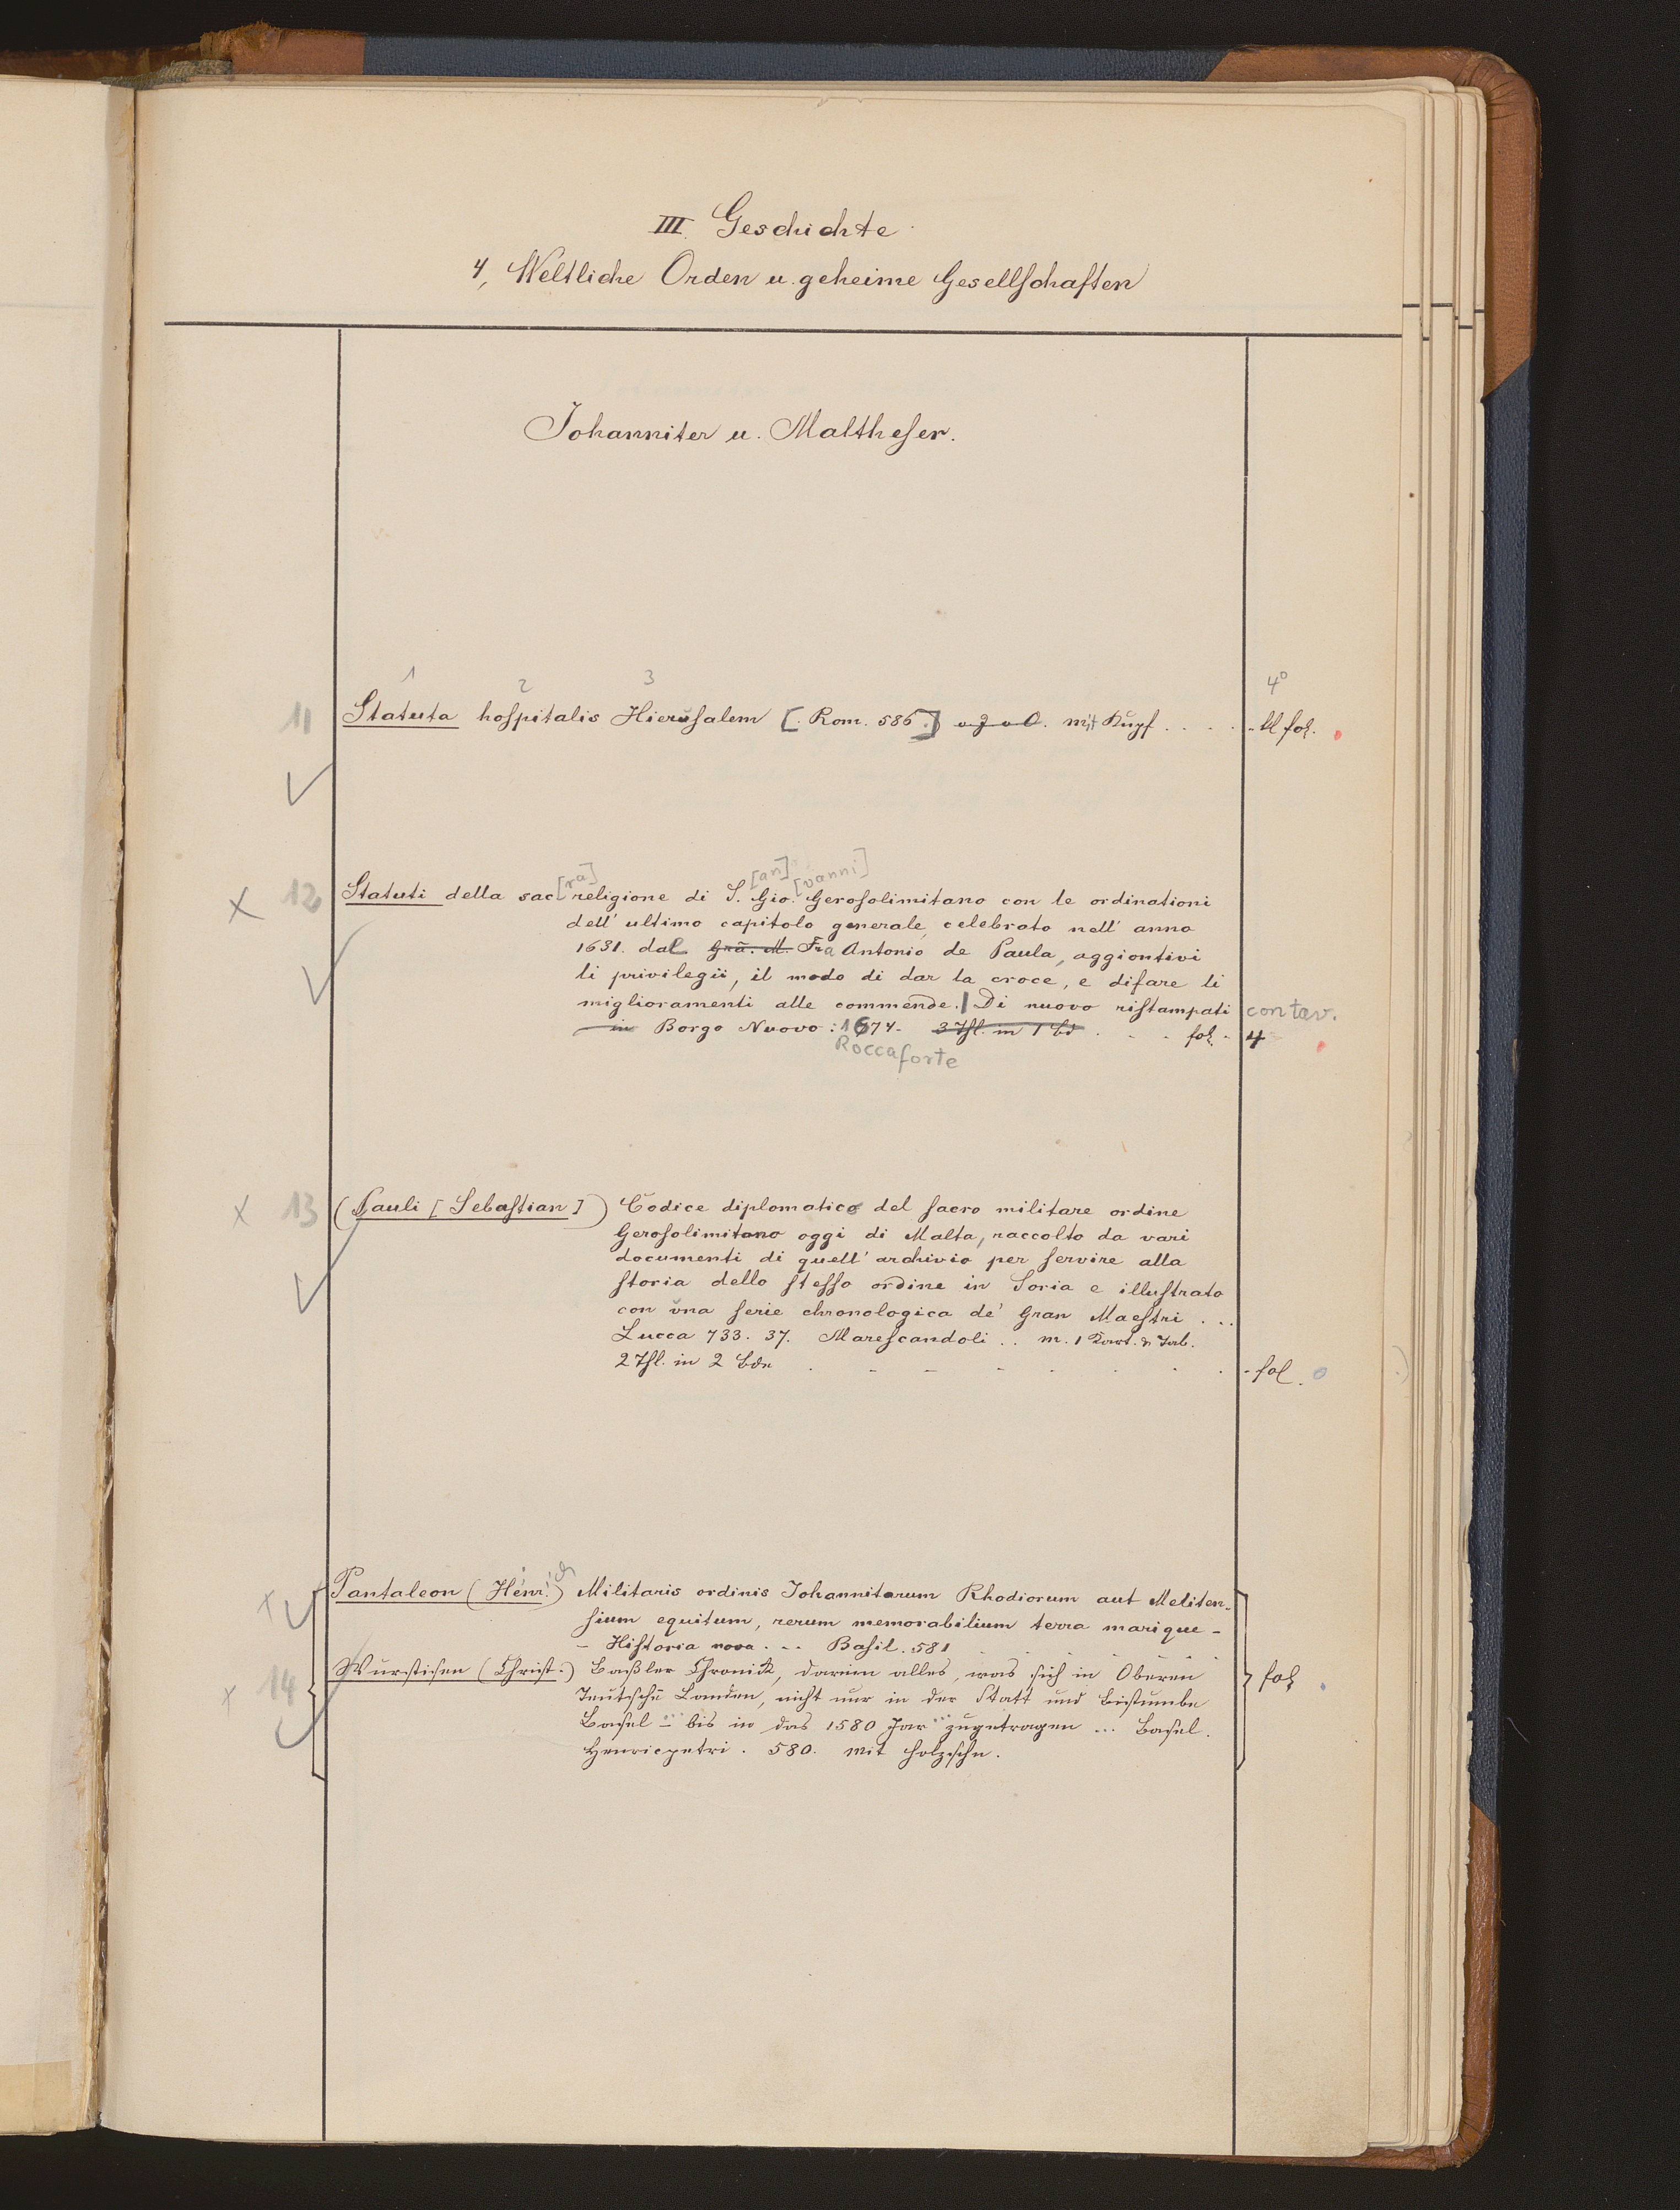 III. Geschichte.
4, Weltliche Orden u. geheime Gesellschaften
Johanniter u. Maltheser.
1 2 3 4°
11 Statuta hospitalis Hierusalem [. Rom. 586.] o. J. o. O. mit Kupf. . . . . kl fol.
[ra] [an] [vanni]
x 12 Statuti della sac religione di S. Gio. Gerosolimitano con le ordinationi
dell' ultimo capitolo generale celebrato nell' anno
1631. dal Grã. M. Fra Antonio de Paula, aggiontivi
li privilegii, il modo di dar la croce, e difare li
miglioramenti alle commende. | Di nuovo ristampati con tav.
in Borgo Nuovo : 1674. 3 Thl. in 1 Bd . . . fol. 4
Roccaforte
x 13 (Pauli [Sebastian]) Codice diplomatico del sacro militare ordine
Gerosolimitano oggi di Malta, raccolto da vari
documenti di quell' archivio per servire alla
storia dello stesso ordine in Soria e illustrato
con una serie chronologica de' Gran Maestri . . .
Lucca 733. 37. Marescandoli . . m. 1 Kart. & Tab.
2 Thl. in 2 Bdn . - - - . . . - fol.
x Pantaleon (Henr.ich) Militaris ordinis Johannitarum Rhodiorum aut Meliten-
sium equitum, rerum memorabilium terra marique -
- Historia nova . . . Basil. 581
x 14 Wurstisen (Christ.) Baßler Chronick, darinn alles, was sich in Oberen fol
Teutschẽ Landen, nicht nur in der Statt und Bistumbe
Basel - bis in das 1580 Jar zugetragen ... Basel.
Henricpetri . 580. mit Holzschn.